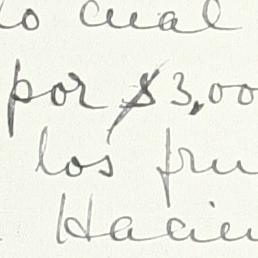 lo cual
por $3,00
los fru
Hacien